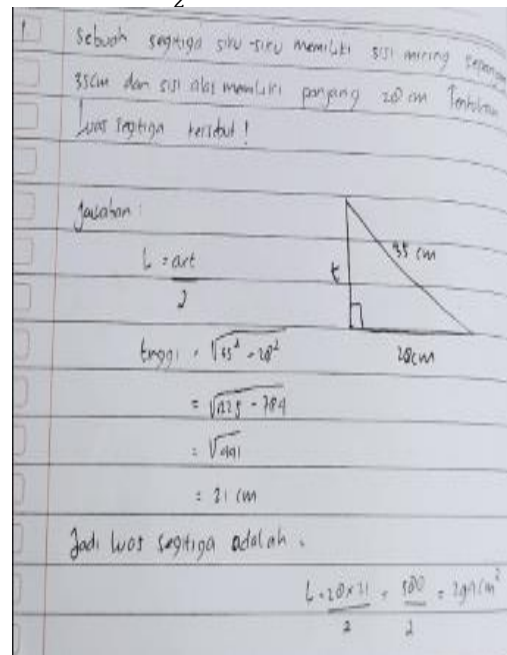 2
1 Sebuah segitiga siku-siku memiliki sisi miring sepanjang
35cm dan sisi alas memiliki panjang 28 cm Tentukan
Luas segitiga tersebut!
Jawaban:
L = axt
2
35 cm
t
tinggi = √35² - 28²
28cm
= √1225 - 784
= √441
= 21 cm
Jadi luas segitiga adalah:
L = 28x21 = 588 = 294cm²
2 2